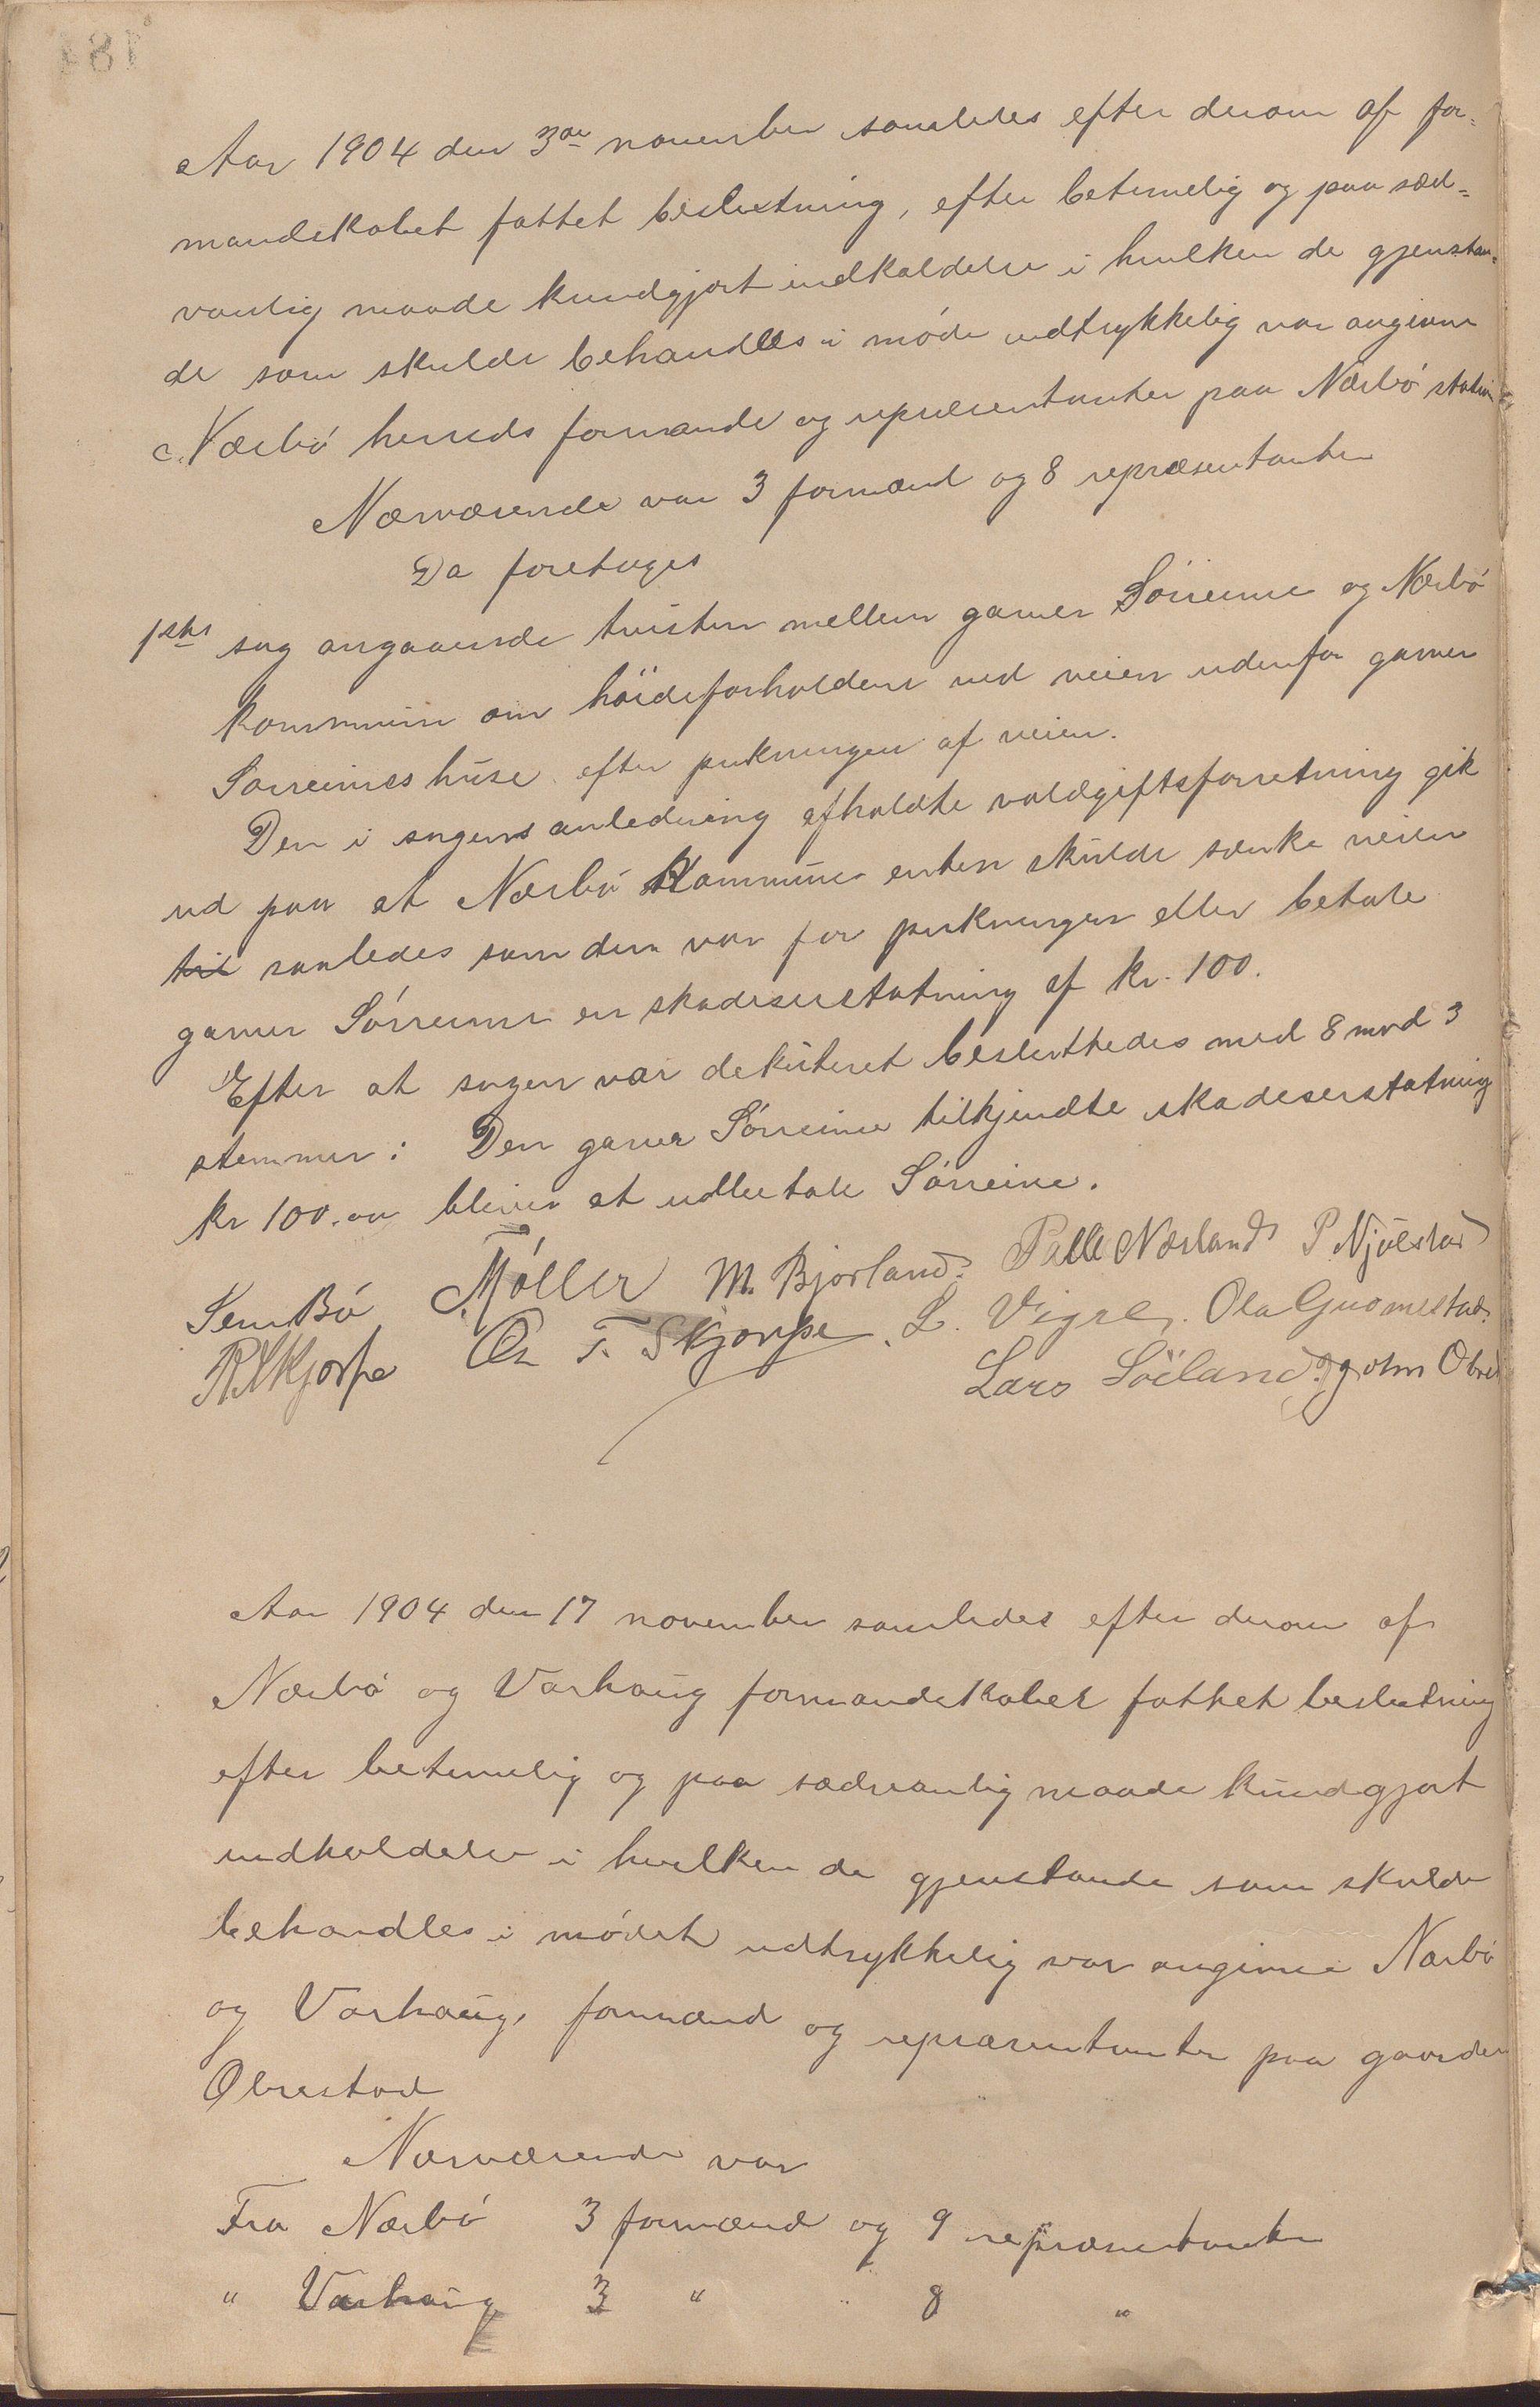 Aar 1904 den 3de november samledes efter derom af for=
mandskabet fattet beslutning, efter betimelig og paa sæd=
vanlig maade kundgjort indkaldelse i hvilken de gjenstan=
de som skulde behandles i møde udtrykkelig var angivne
Nærbø herreds formænde og repræsentanter paa Nærbø station
Nærværende var 3 formænd og 8 repræsentanter
Da foretoges
1ste sag angaaende tvisten mellem garver Sörreime og Nærbø
kommune om höideforholdene ved veien udenfor garver
Sorreimes huse efter pukningen af veien.
Den i sagens anledning afholdte voldgiftsforretning gik
ud paa at Nærbø Kommune enten skulde sænke veien
til saaledes som den var for pukningen eller betale
garver Sörreime en skadeserstatning af kr. 100.
Efter at sagen var dekuteret besluttedes med 8 mod 3
stemmer: Den garver Sörreime tilkjendte skadeserstatning
kr 100.00 bliver at udbetale Sörreime.
Sem Bö Möller M. Bjorland. Palle Nærland P Njølstad
R Skjorpe Ou T. Skjorpe. L. Vigre. Ola Guomestad.
Lars Söiland. John Obre
Aar 1904 den 17 november samledes efter derom af
Nærbø og Varhaug formandskaber fattet beslutning
efter betimelig og paa sædvanlig maade kundgjort
indkaldelse i hvilken de gjenstande som skulde
behandles i mødet udtrykkelig var angivne Nærbø
og Varhaug, formænd og repræsentanter paa gaarden
Obrestad
Nærværende var
Fra Nærbö 3 formænd og 9 repræsentanter
" Varhaug 3 " " 8 "
181